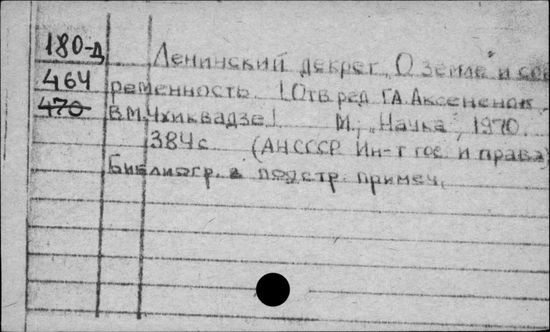 180-Д Ленинский декрет „О земле" и сов
464 ременность. [Отв. ред. Г.А. Аксененок,
470 В.М. Чхиквадзе]. М., „Наука", 1970.
384 с. (АН СССР. Ин-т гос. и права)
Библиогр. в подстр. примеч.